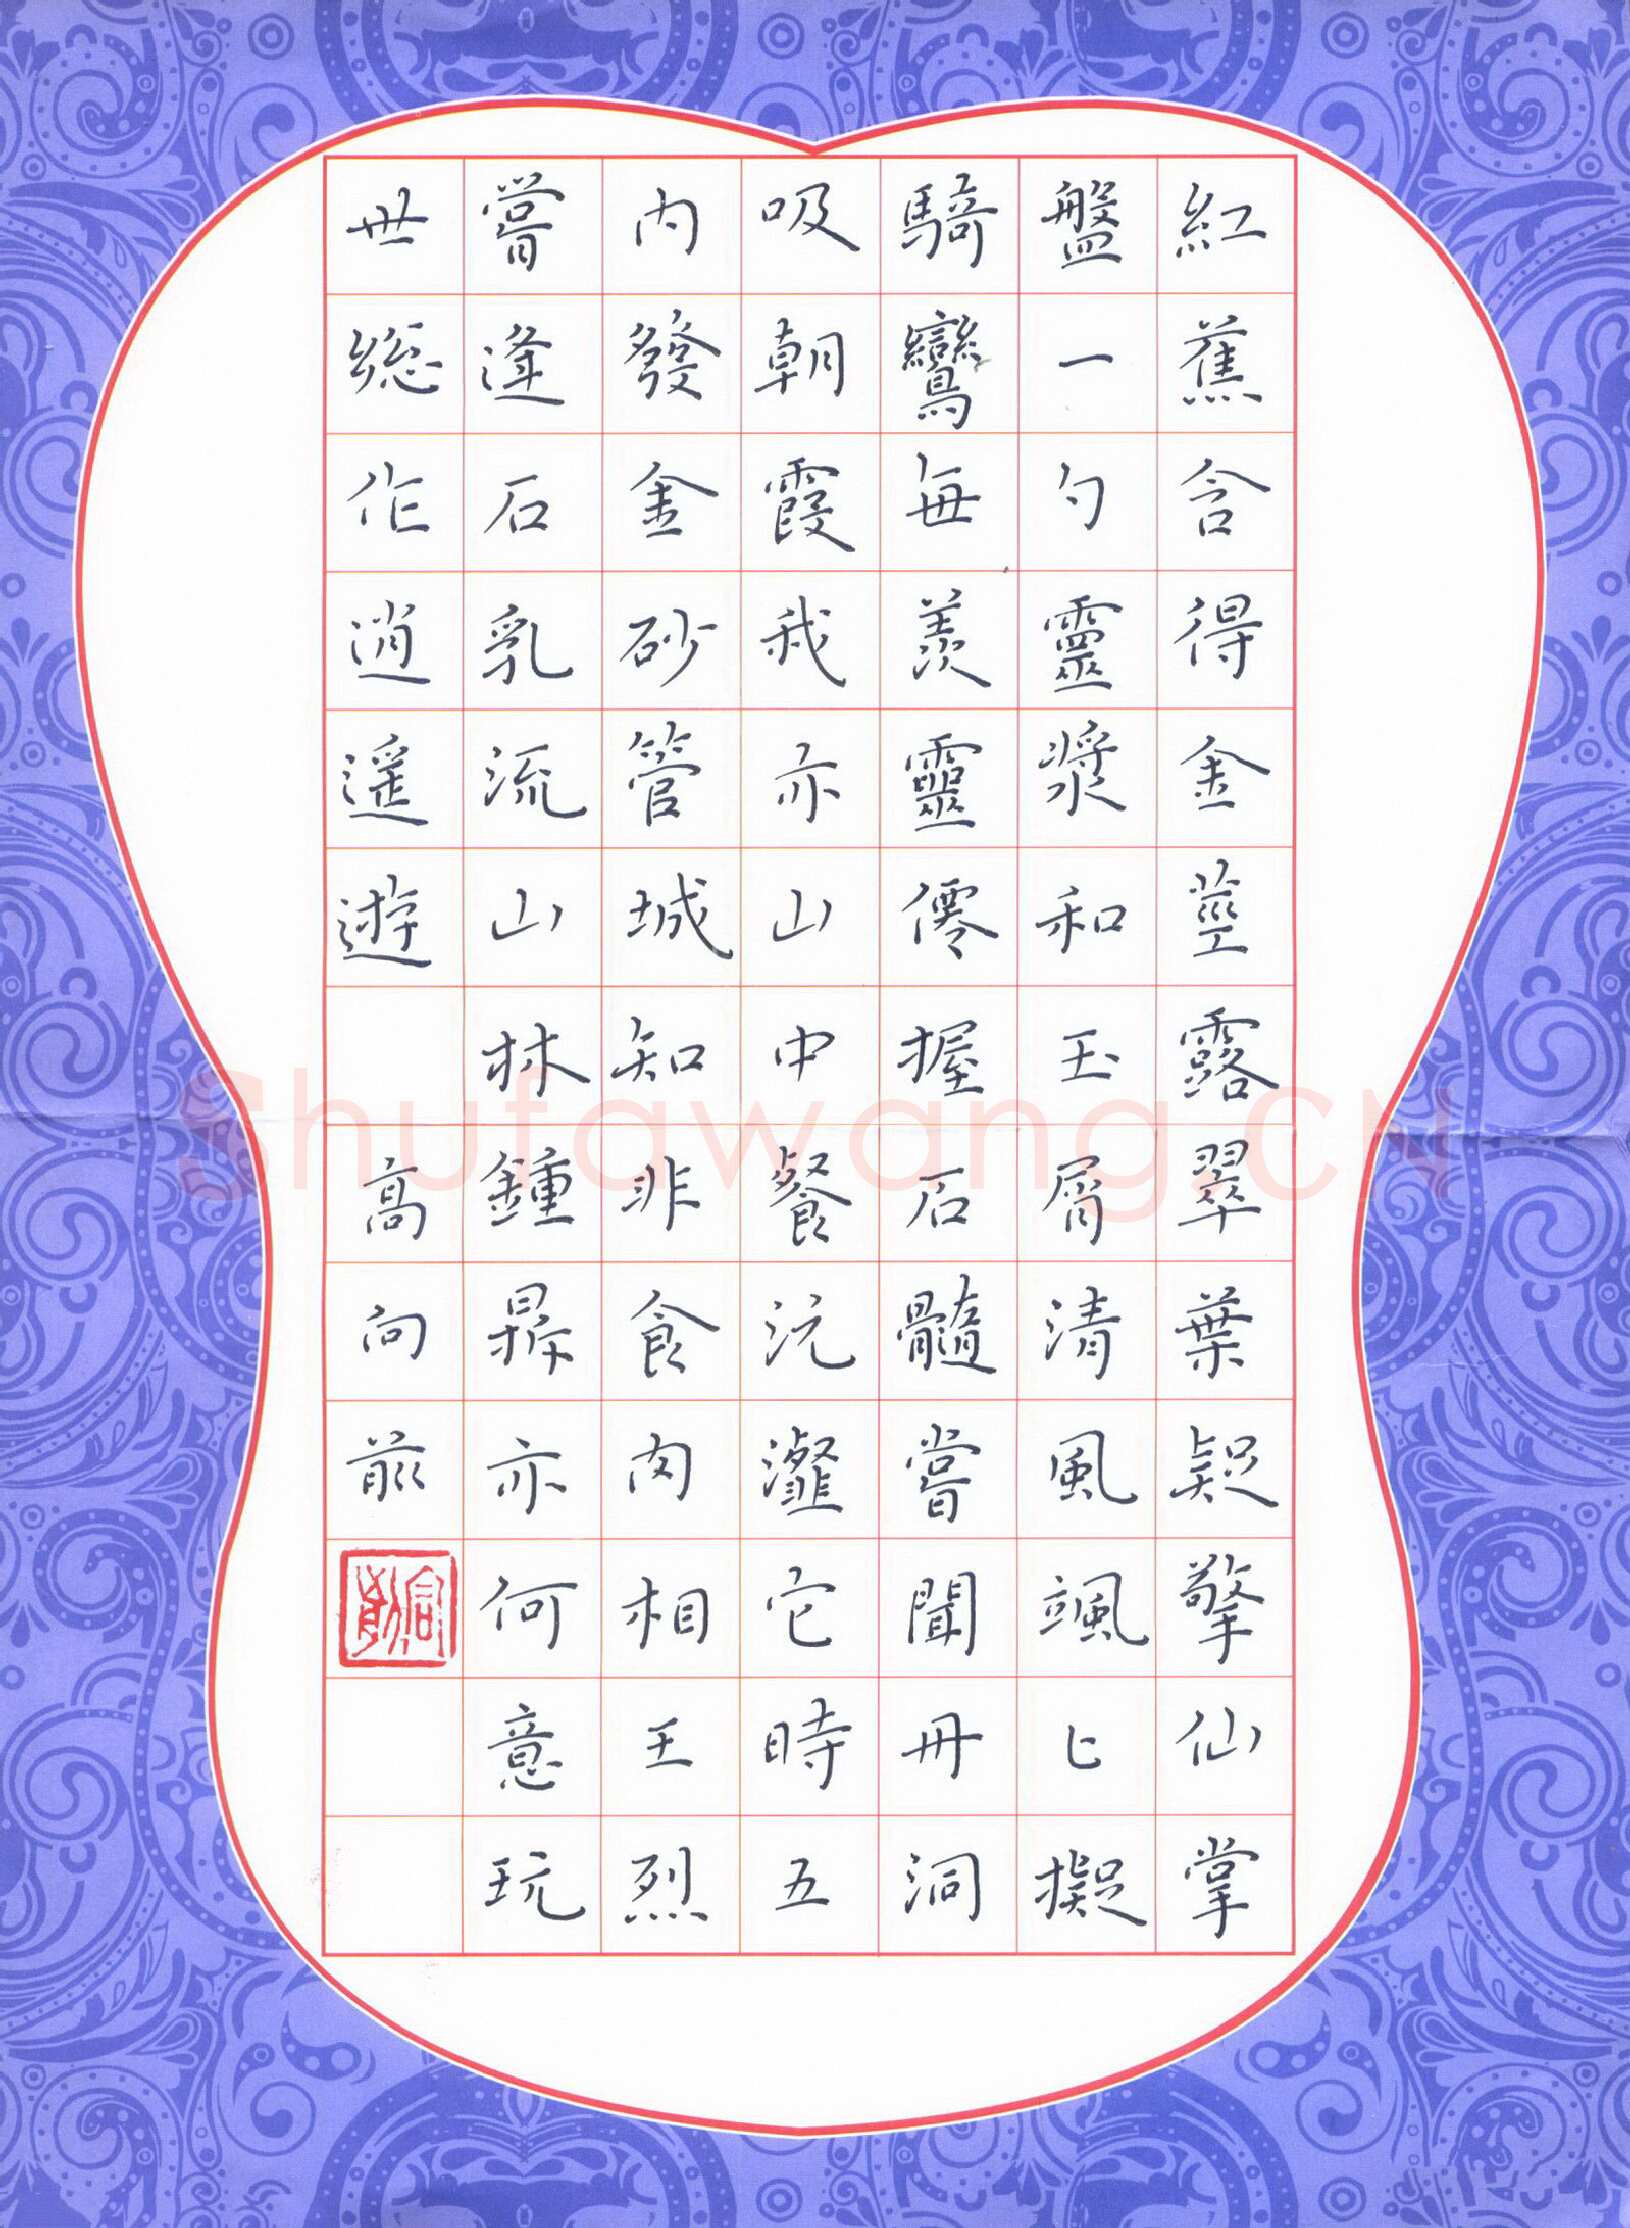 紅蕉含得金莖露翠葉疑擎仙掌
盤一勺靈漿和玉屑清風颯匕擬
騎鸞每羨靈僊握石髓嘗聞丹洞
吸朝霞我亦山中餐沆瀣它時五
内發金砂管城知非食肉相王烈
嘗逢石乳流山林鍾鼎亦何意玩
世総作逍遥遊
高向前
Shufawang.CN